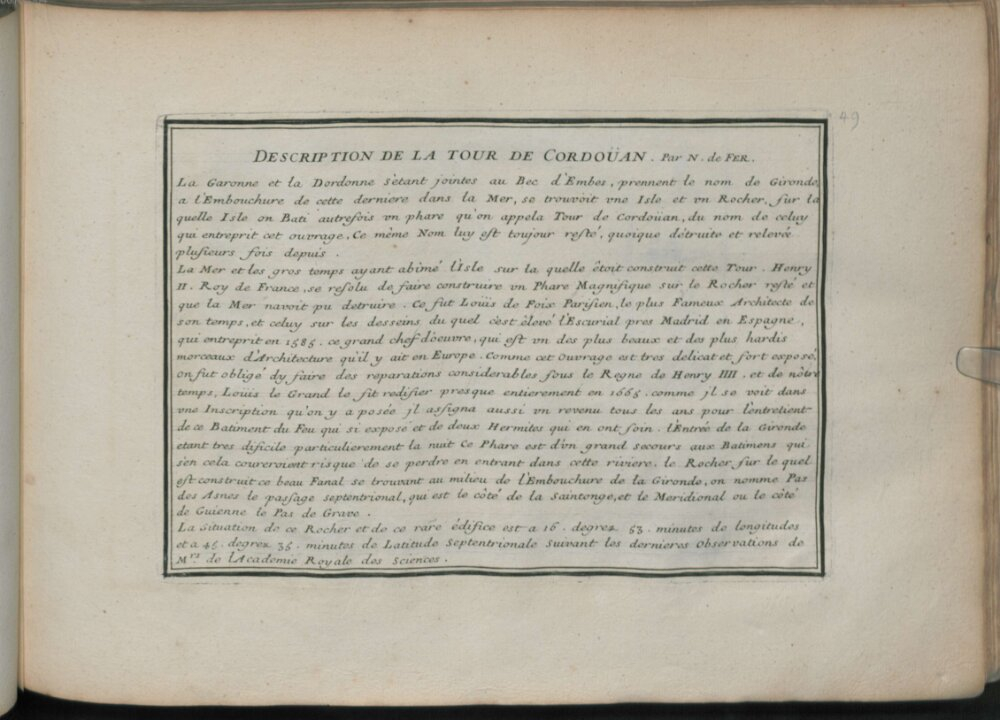 49
DESCRIPTION DE LA TOUR DE CORDOÜAN. Par N. de FER.
La Garonne et la Dordonne s'étant jointes au Bec d'Embes, prennent le nom de Gironde,
a l'Embouchure de cette derniere dans la Mer, se trouvoit vne Isle et vn Rocher, sur la
quelle Isle on Bati autrefois vn phare qu'on appela Tour de Cordoüan, du nom de celuy
qui entreprit cet ouvrage. Ce même Nom luy est toujour resté, quoique détruite et relevée
plusieurs fois depuis.
La Mer et les gros temps ayant abîmé l'Isle sur la quelle êtoit construit cette Tour. Henry
II. Roy de France, se resolu de faire construire vn Phare Magnifique sur le Rocher resté et
que la Mer n'avoit pu detruire. Ce fut Loüis de Foix Parisien, le plus Fameux Architecte de
son temps, et celuy sur les desseins du quel c'est êlevé l'Escurial pres Madrid en Espagne,
qui entreprit en 1585. ce grand chef d'oeuvre, qui est vn des plus beaux et des plus hardis
morceaux d'Architecture qu'il y ait en Europe. Comme cet Ouvrage est tres delicat et fort exposé,
on fut obligé d'y faire des reparations considerables sous le Regne de Henry IIII. et de nôtre
temps, Loüis le Grand le fit redifier presque entierement en 1665. comme jl se voit dans
vne Inscription qu'on y a posée jl assigna aussi vn revenu tous les ans pour l'entretient
de ce Batiment du Feu qui si exposé et de deux Hermites qui en ont soin. l'Entrée de la Gironde
etant tres dificile particulierement la nuit Ce Phare est d'vn grand secours aux Batimens qui
s'en cela coureroient risque de se perdre en entrant dans cette riviere. le Rocher sur le quel
est construit ce beau Fanal se trouvant au milieu de l'Embouchure de la Gironde, on nomme Pas
des Asnes le passage septentrional, qui est le côté de la Saintonge, et le Meridional ou le côté
de Guienne le Pas de Grave.
La Situation de ce Rocher et de ce rare édifice est a 16. degrez 53. minutes de longitudes
et a 45. degrez 35. minutes de Latitude Septentrionale Suivant les dernieres Observations de
Mrs. de l'Academie Royale des Sciences.